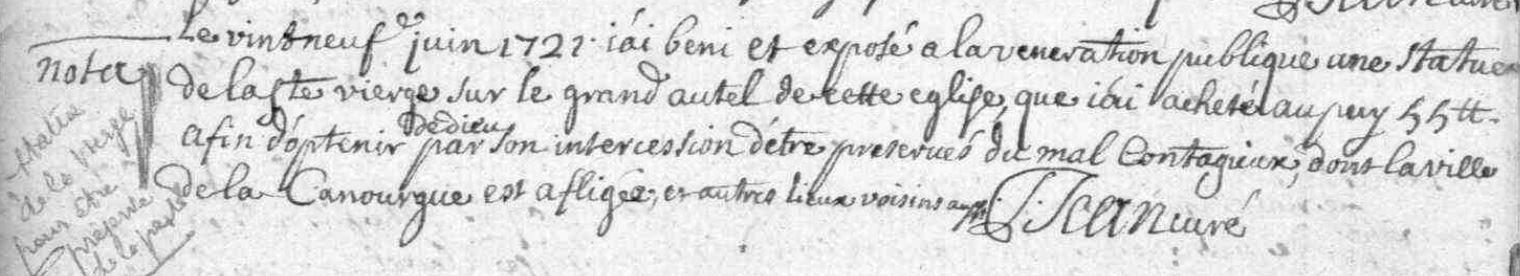 Le vintneuf.e juin 1721 iái beni et exposé a la veneration publique une statue
nota
de la ste vierge sur le grand autel de cette eglise, que iái acheté au puy 55 tt.
afin d'óptenir de dieu par son intercession d'étre preservés du mal contagieux, dont la ville
de la Canourgue est afligée, et autres lieux voisins
curé
statue
de la Vierge
pour être
préservé
de la peste